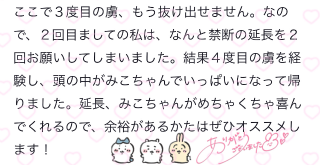 ここで３度目の虜、もう抜け出せません。なの
で、２回目ましての私は、なんと禁断の延長を２
回お願いしてしまいました。結果４度目の虜を経
験し、頭の中がみこちゃんでいっぱいになって帰
りました。延長、みこちゃんがめちゃくちゃ喜ん
でくれるので、余裕があるかたはぜひオススメし
ます！
ありがとう
ございました